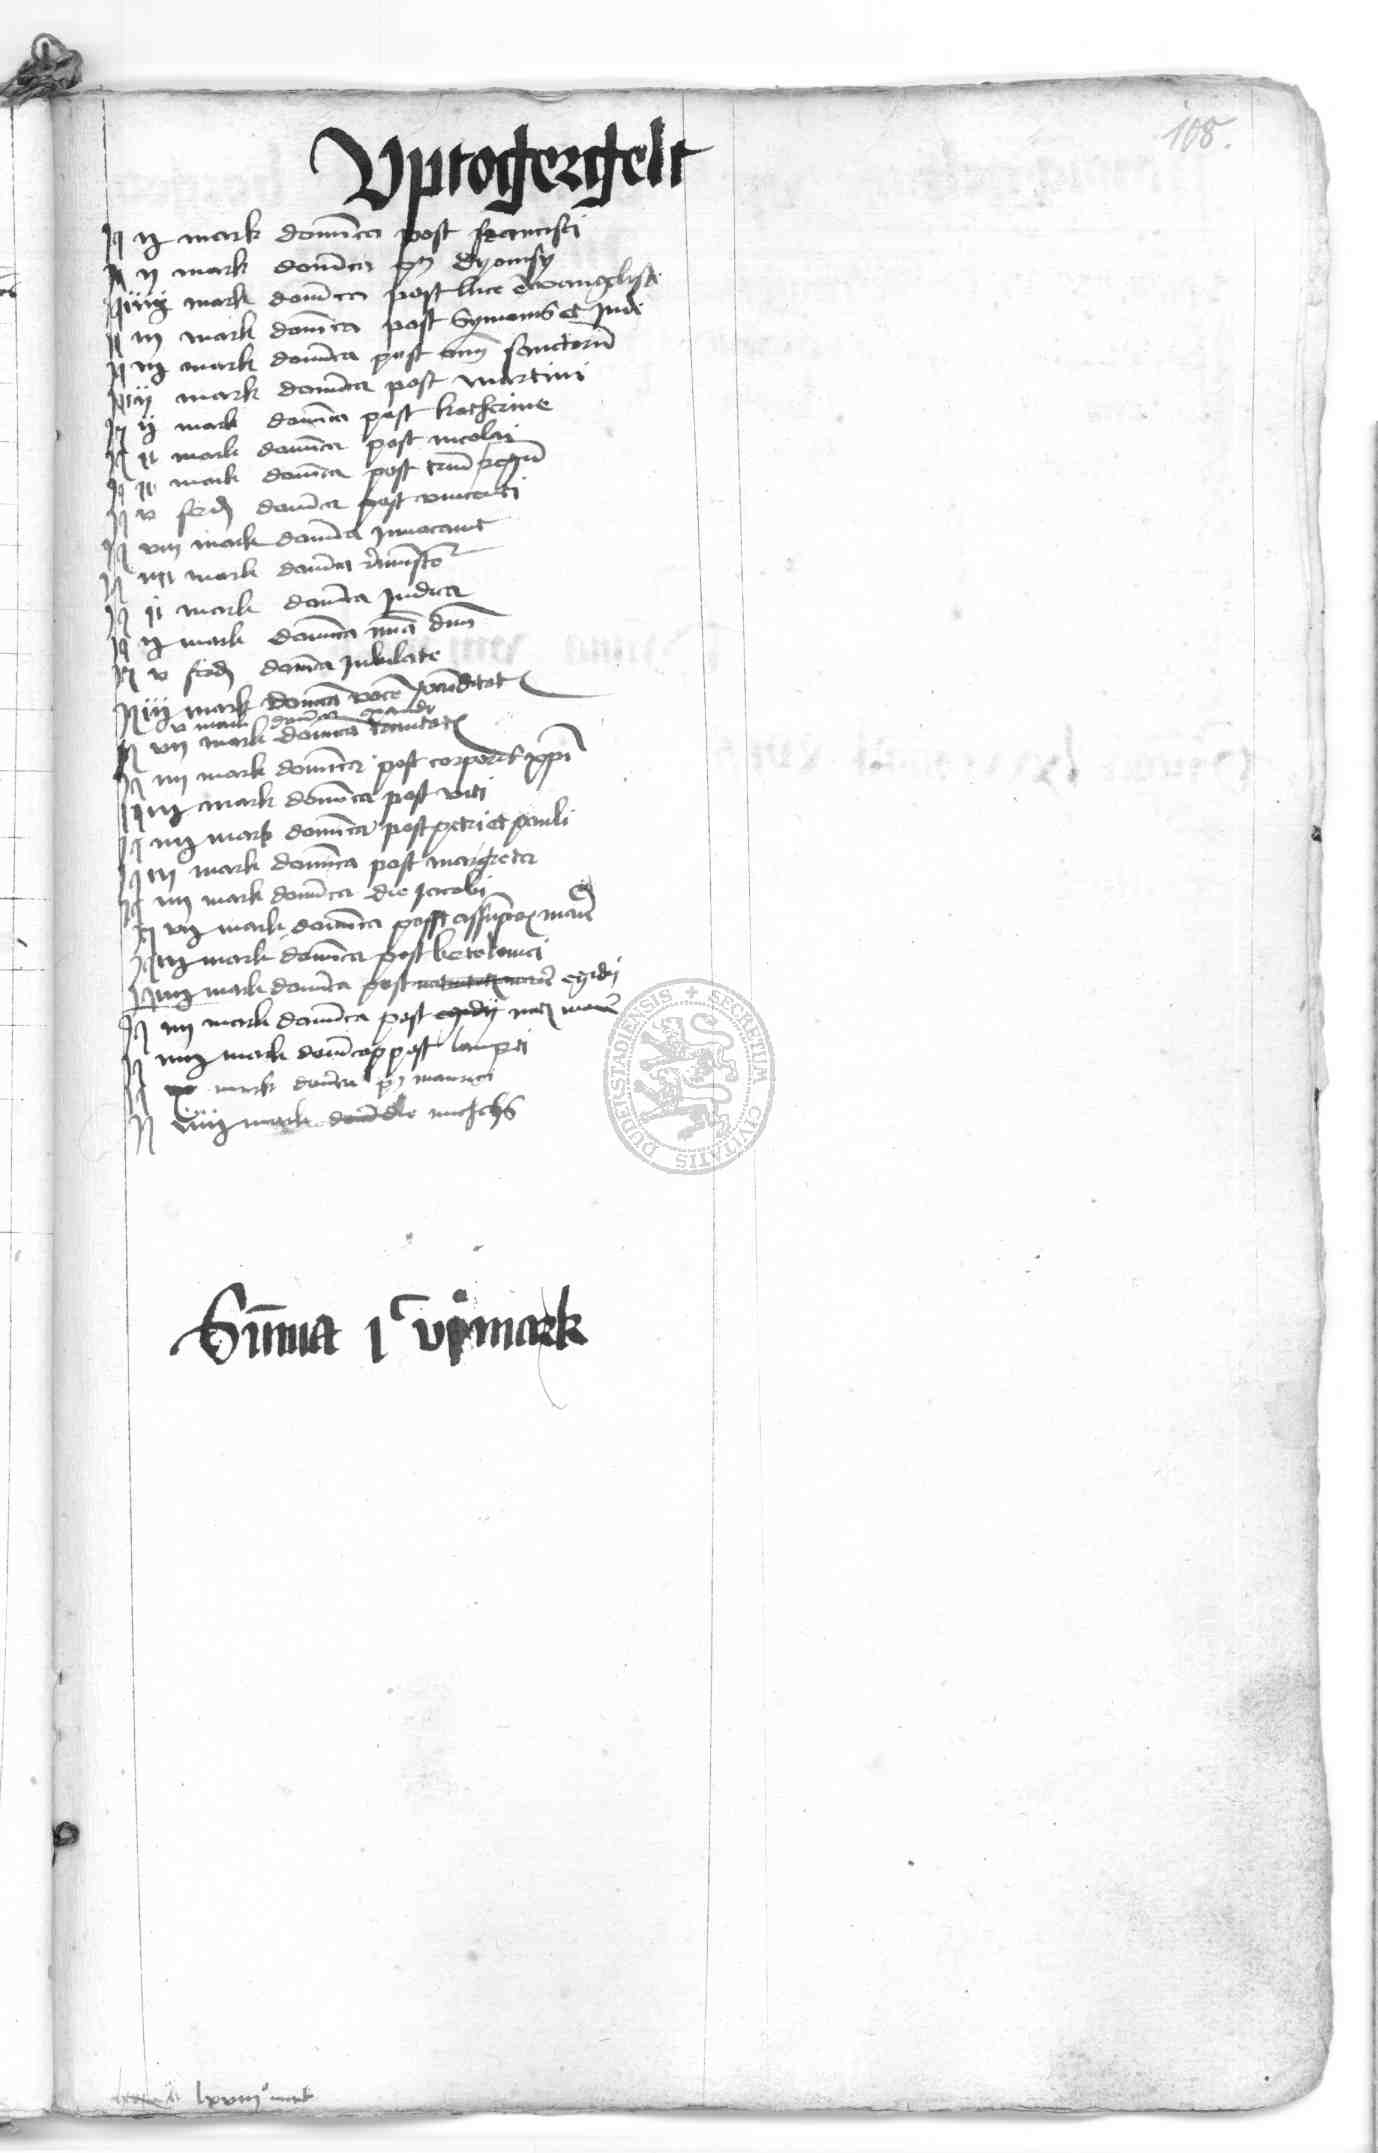 108.
Uptoghergelt
It ij mark dominica post francisci
It ij mark dominica post dyonisy
It iiij mark dominica post luce ewangeliste
It iij mark dominica post Symonis et Jude
It iij mark dominica post omnium sanctorum
It ij mark dominica post martini
It ij mark dominica post katherine
It ij mark dominica post nicolai
It ij mark dominica post trium regum
It v ferd dominica post vincenti
It viij mark dominica Invocavit
It iij mark dominica reminiscere
It ij mark dominica Judica
It ij mark dominica misericordia domini
It v ferd dominica Jubilate
It iij mark dominica vocem jocunditatis
v mark dominica exaudi
It vij mark dominica trinitatis
It iiij mark dominica post corporis christi
It iij mark dominica post viti
It iiij mark dominica post petri et pauli
It iij mark dominica post margrete
It iiij mark dominica die Jacobi
It vij mark dominica post assumptionis marie
It iij mark dominica post bartolomei
It iiij mark dominica post egidii
It iiij mark dominica post egidii nat marie
It iiij mark dominica post lamperti
It x mark dominica post mauricii
It viiij mark dominica die michels
Summa j c vj mark
lxviij mark
SECRETUM CIVITATIS DUDERSTADIENSIS